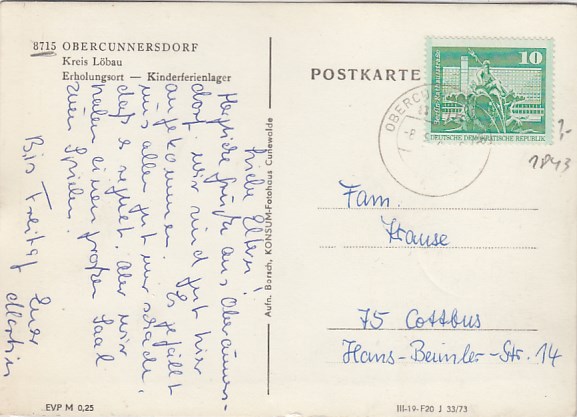 8715 OBERCUNNERSDORF
Kreis Löbau
Erholungsort — Kinderferienlager
Liebe Eltern!
Herzliche Grüße aus Obercunners-
dorf. Wir sind gut hier
angekommen. Es gefällt
uns allen gut nur schade,
daß es regnet. Aber wir
haben einen großen Saal
zum Spielen.
Bis Freitag Euer
Martin
Aufn. Borsch, KONSUM-Fotohaus Cunewalde
POSTKARTE
10
Berlin-Rathausstraße
DEUTSCHE DEMOKRATISCHE REPUBLIK
OBERCU
1843
Fam.
Krause
75 Cottbus
Hans-Beimler-Str. 14
EVP M 0,25
III-19-F20 J 33/73